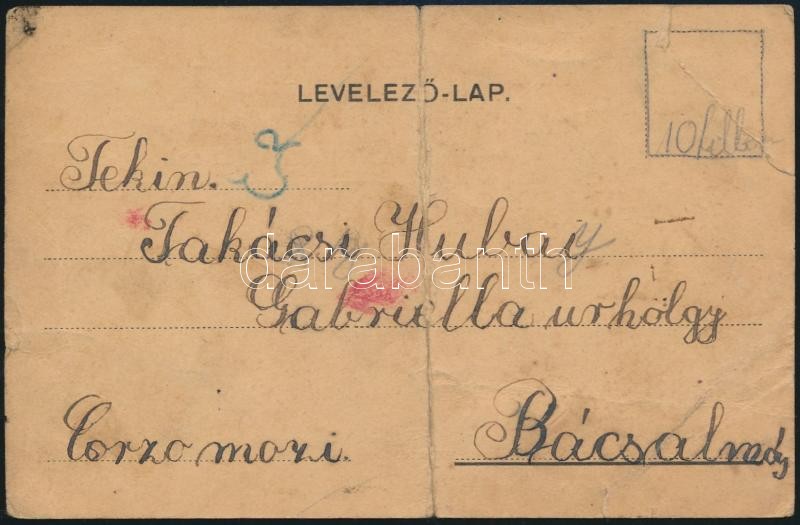 LEVELEZŐ-LAP.
10 fillér
Tekin.
Takácsi Hubay
Gabriella urhölgy
Corzo mozi.
Bácsalmás
darabanth